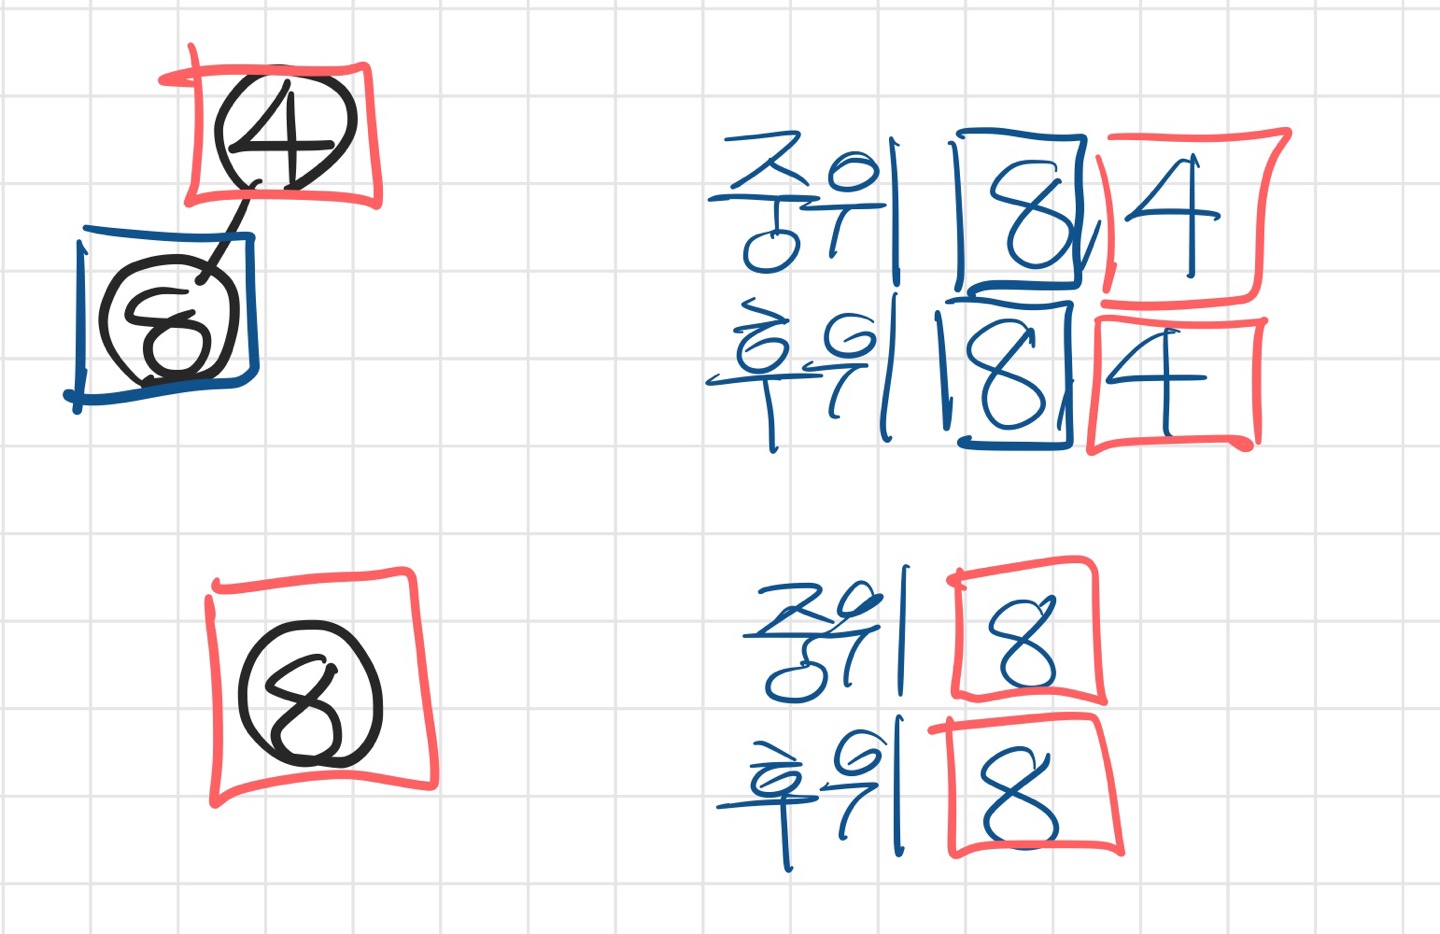 4
8
중위 8, 4
후위 8, 4
8
중위 8
후위 8